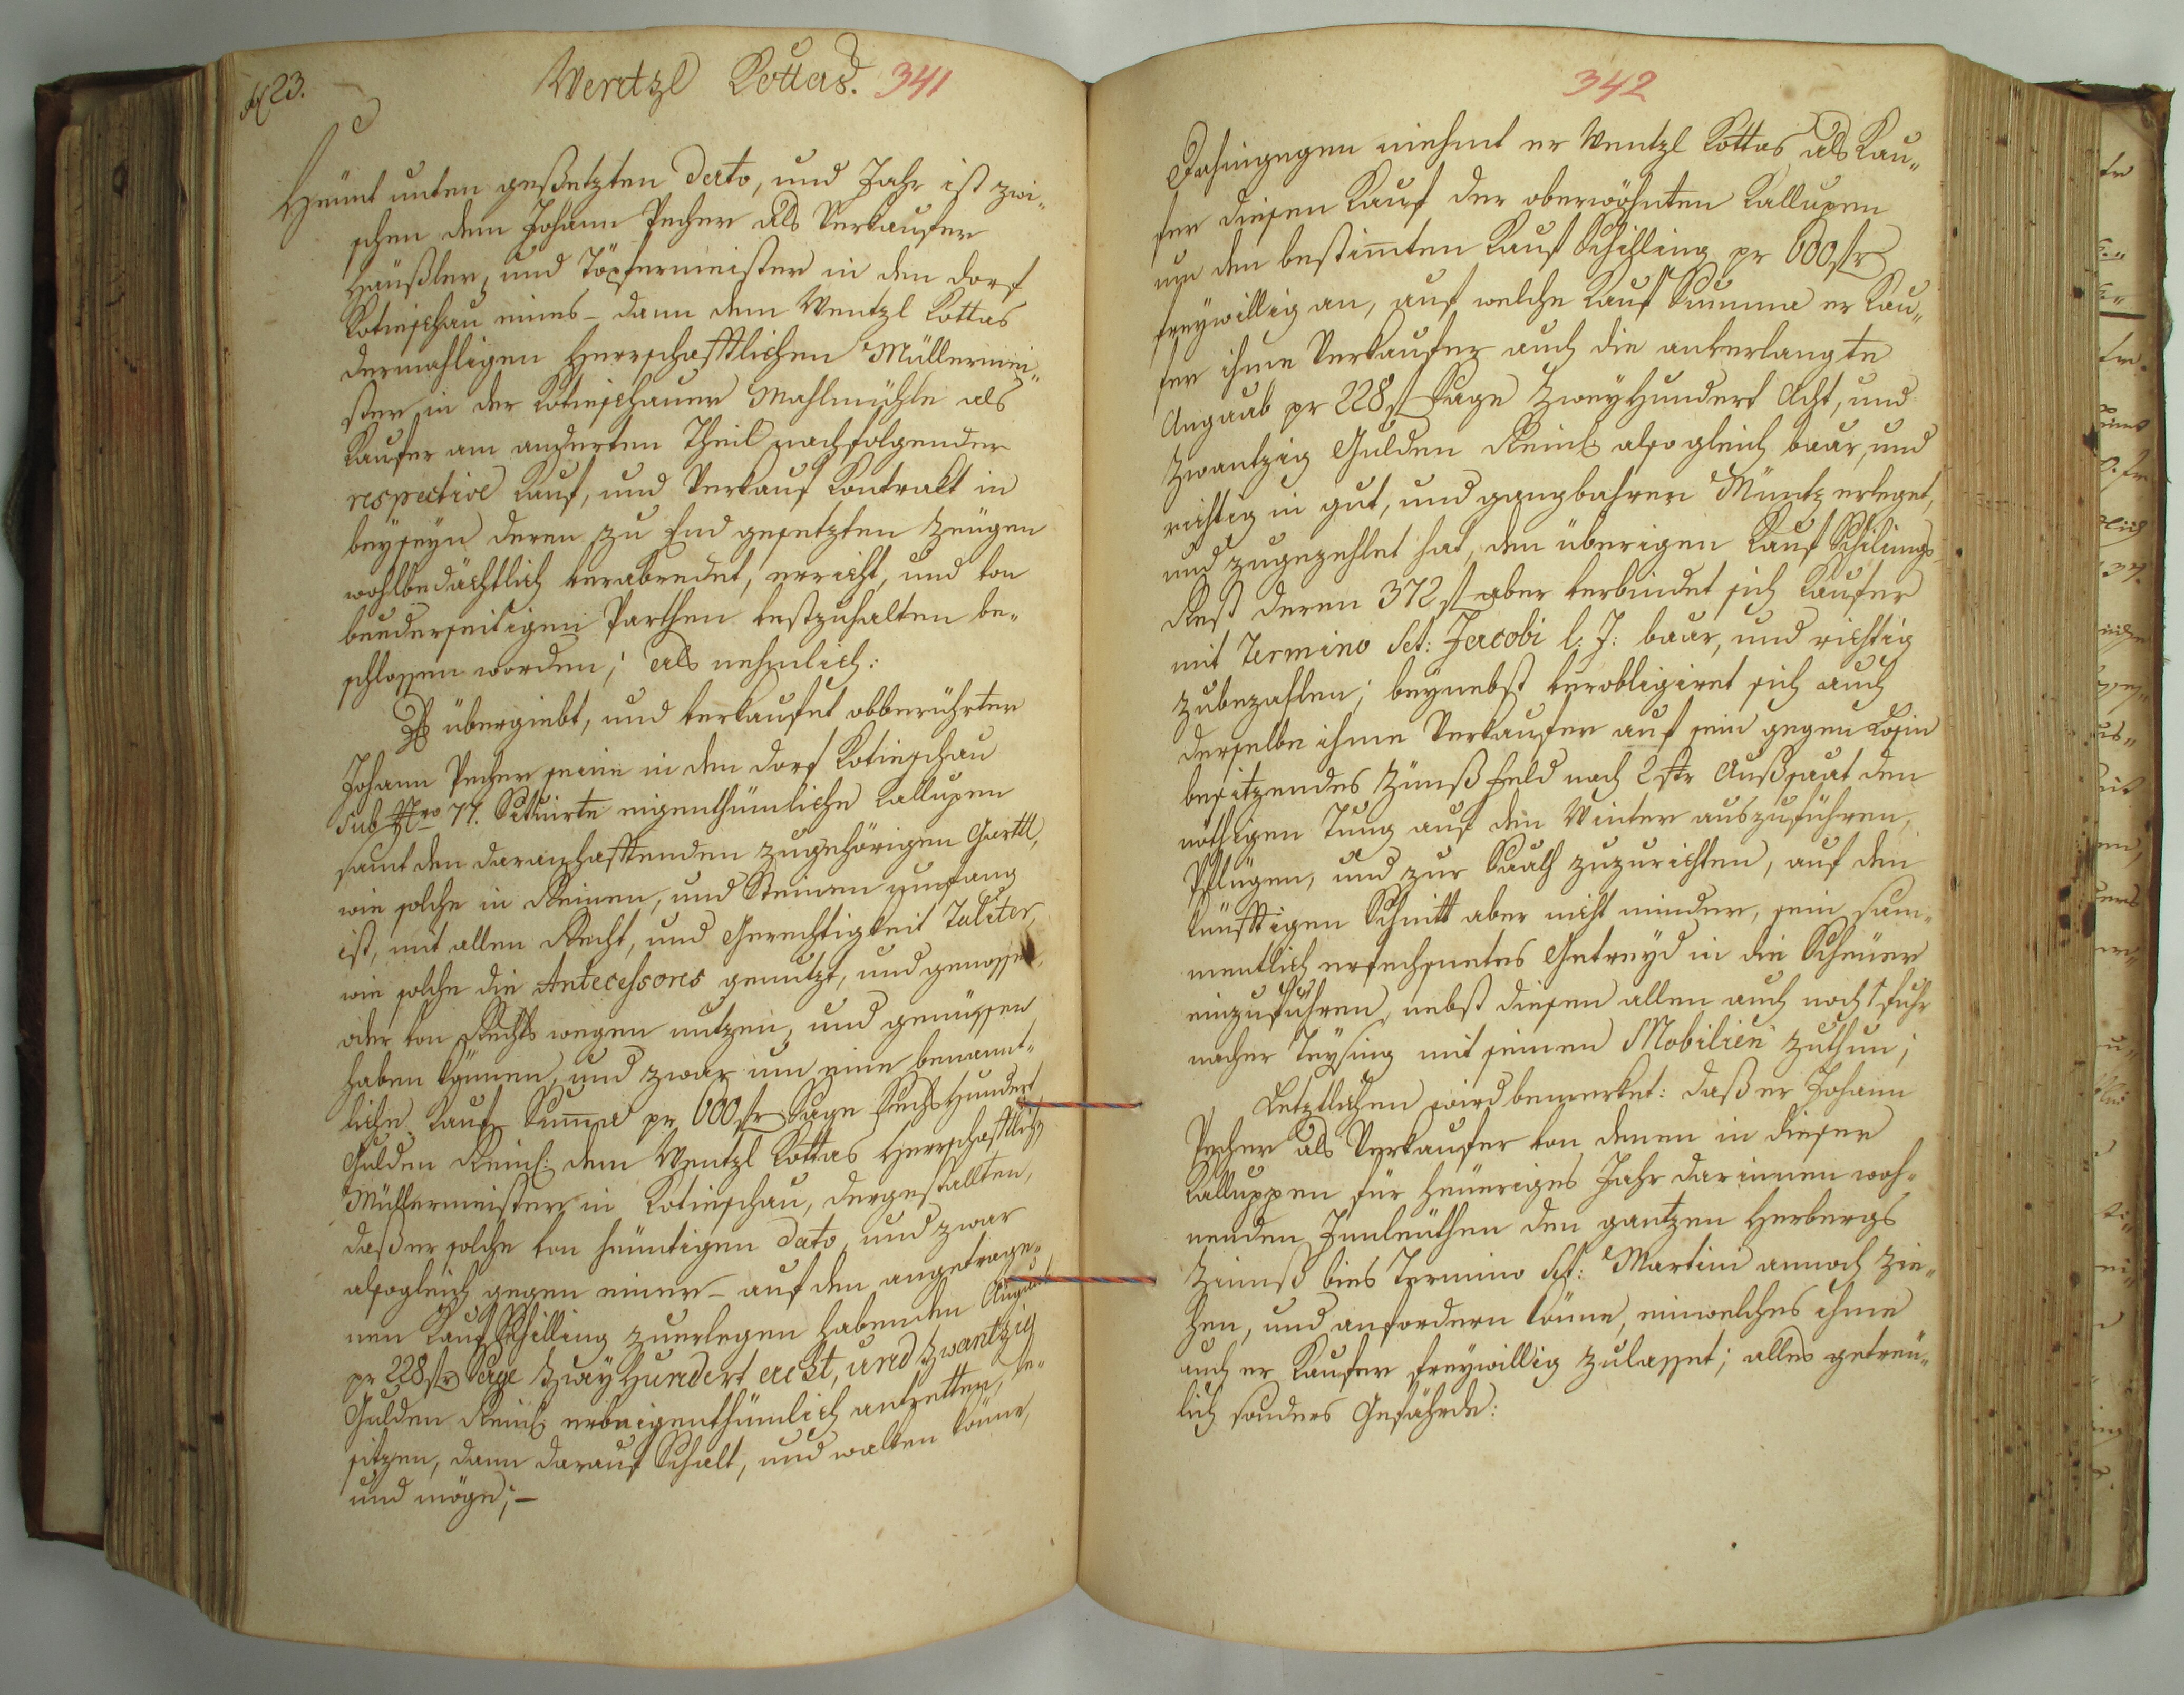 23.
Wentzl Kottas. 341
Heünt unten geßetzten Dato, und Jahr ist zwi„
schen dem Johann Pecher als Verkaufer
Häußler, und Töpfermeister in den Dorf
Kotieschau eines - dann dem Wentzl Kottas
dermahligen Herrschafftlichen Müllermei„
ster in der Kotieschauer Mahlmühle als
Kaufer am anderten Theil nachfolgender
respective Kauf, und Verkauf Kontrakt in
beyseyn deren zu End gesetzten Zeügen
wohlbedächtlich verabredet, erricht, und von
beederseitigen Parthen vestzuhalten be„
schlossen worden; als nehmlich:
übergiebt, und verkaufet obberührter
Johann Pecher seine in den Dorf Kotieschau
sub Nro 77. Situirte eigenthümliche Kallupen
samt den daranhafftenden zugehörigen Gartl,
wie solche in Reinen, und Steinen umfang
ist, mit allen Recht, und Gerechtigkeit Taliter,
wie solche die Antecessores genutzt, und genossen,
oder von Rechts wegen nutzen, und genüssen
haben können, und zwar um eine benannt„
liche Kauf Sum̄a pr 600 fr Sage Sechs Hundert
Gulden Reinl: dem Wentzl Kottas Herrschafftlich
Müllermeister in Kotieschau, dergestallten,
daß er solche von heüntigen dato, und zwar
alsogleich gegen einer - auf den angetrage„
nen Kauf Schilling zuerlegen habenden Angaab
pr 228 fr Sage Zwey Hundert acht, und Zwantzig
Gulden Reinl erbeigenthümlich antretten, be„
sitzen, dann darauf Schalt, und walten könne,
und möge; -
342
Dahingegen niehmt er Wentzl Kottas als Kau„
fer diesen Kauf der oberwöhnten Kallupen
um den bestim̄ten Kauf Schilling pr 600 fr
freywillig an, auf welche Kauf Summa er Kau„
fer ihme Verkaufer auch die anverlangte
Angaab pr 228 f Sage Zwey Hundert Acht, und
Zwantzig Gulden Reinl alsogleich baar, und
richtig in gut, und gangbahrer Müntz erleget,
und zugezehlet hat, den überigen Kauf Schilings
Rest deren 372 f aber verbindet sich Kaufer
mit Termino Sct: Jacobi l: J: baar, und richtig
zubezahlen; beynebst verobligiret sich auch
derselbe ihme Verkaufer auf sein gegen Losin
besitzendes Zünß Feld nach 2 Str Außsaat den
nöthigen Tung auf den Winter auszuführen,
Pflügen, und zur Saath zuzurichten, auf den
künfftigen Schnitt aber nicht minder, sein sam„
mentlich erfechsnetes Getreyd in die Scheüer
einzuführen, nebst diesen allen auch noch 1 Fuhr
nacher Teysing mit seinen Mobilien zuthun;
Letztlichen wird bemerket: daß er Johann
Pecher als Verkaufer von denen in dieser
Kalluppen für heüeriges Jahr darinnen woh„
nenden Innleüthen den gantzen Herbergs
Zinnß bies Termino Sct: Martini annoch zie„
hen, und anfordern könne, ein welches ihme
auch er Kaufer freywillig zulasset; alles getreü„
lich sonders Gefährde: